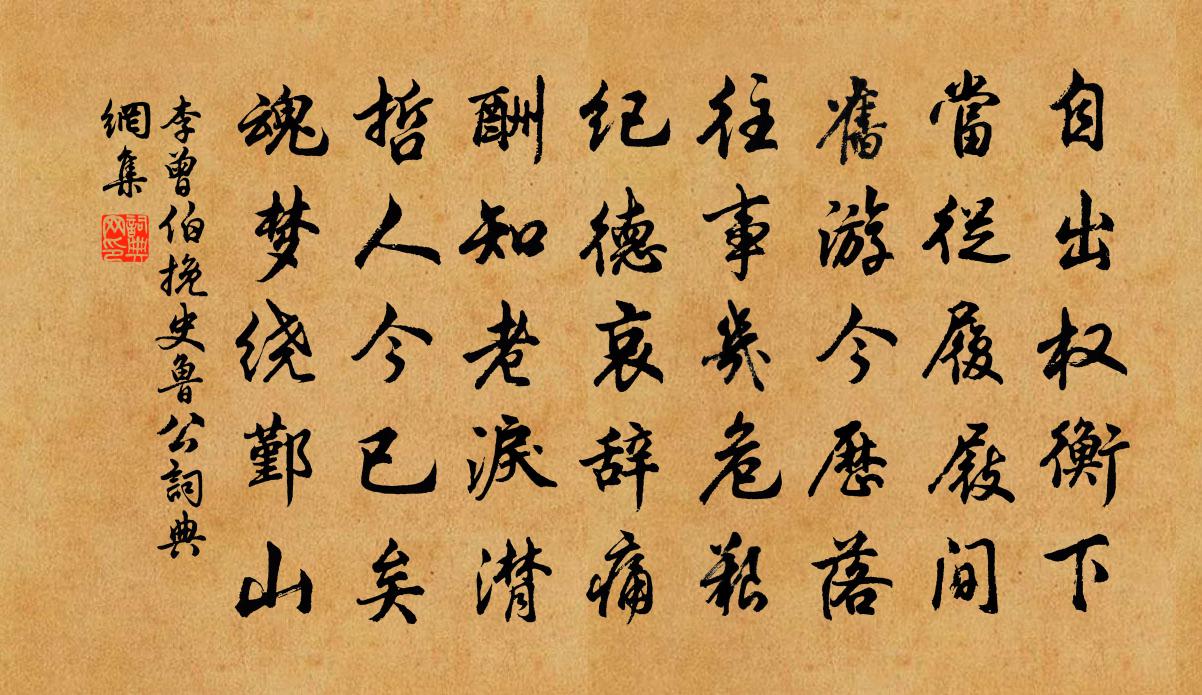 自出权衡下
當從履屐间
舊游今歷落
往事幾危艱
纪德哀辞痛
酬知老淚潸
哲人今已矣
魂梦绕鄞山
李曾伯挽史魯公詞典
網集
詞典網印